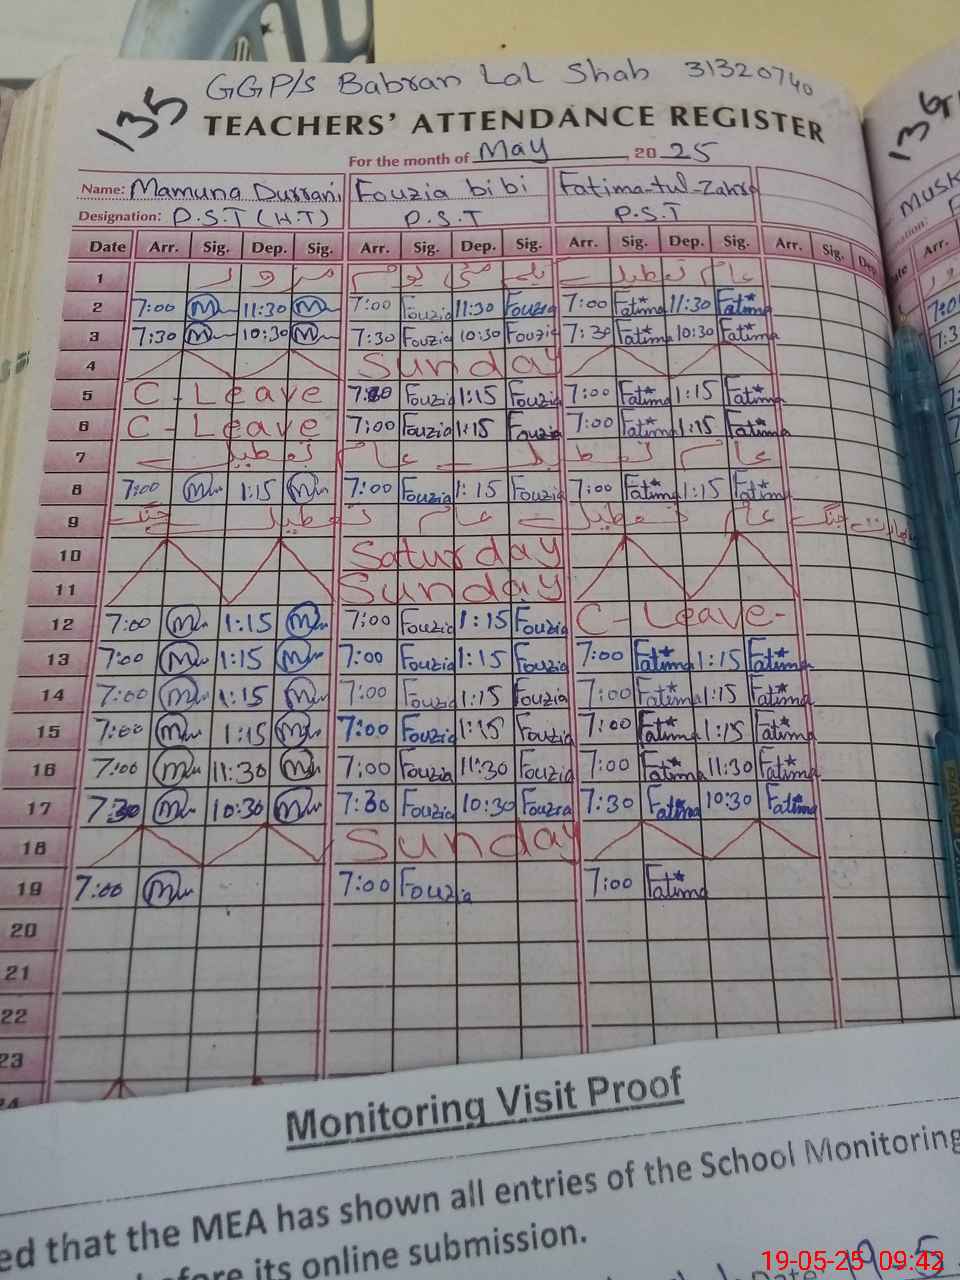 GGP/S Babran Lal Shah 31320740
135
TEACHERS' ATTENDANCE REGISTER
For the month of May, 2025
Name: Mamuna Durrani Fouzia bibi Fatima-tul-Zahra
Designation: P.S.T (H.T) P.S.T P.S.T
Date Arr. Sig. Dep. Sig. Arr. Sig. Dep. Sig. Arr. Sig. Dep. Sig. Arr. Sig. Dep
1 عام تعطیل یکم مئی یوم مزدور
2 7:00 M 11:30 M 7:00 Fouzia 11:30 Fouzia 7:00 Fatima 11:30 Fatima
3 7:30 M 10:30 M 7:30 Fouzia 10:30 Fouzia 7:30 Fatima 10:30 Fatima
4 Sunday
5 C-Leave 7:00 Fouzia 1:15 Fouzia 7:00 Fatima 1:15 Fatima
6 C-Leave 7:00 Fouzia 1:15 Fouzia 7:00 Fatima 1:15 Fatima
7 عام تعطیل عام تعطیل
8 7:00 M 1:15 M 7:00 Fouzia 1:15 Fouzia 7:00 Fatima 1:15 Fatima
9 جنگ عام تعطیل عام تعطیل جنگ
10 Saturday
11 Sunday
12 7:00 M 1:15 M 7:00 Fouzia 1:15 Fouzia C-Leave-
13 7:00 M 1:15 M 7:00 Fouzia 1:15 Fouzia 7:00 Fatima 1:15 Fatima
14 7:00 M 1:15 M 7:00 Fouzia 1:15 Fouzia 7:00 Fatima 1:15 Fatima
15 7:00 M 1:15 M 7:00 Fouzia 1:15 Fouzia 7:00 Fatima 1:15 Fatima
16 7:00 M 11:30 M 7:00 Fouzia 11:30 Fouzia 7:00 Fatima 11:30 Fatima
17 7:30 M 10:30 M 7:30 Fouzia 10:30 Fouzia 7:30 Fatima 10:30 Fatima
18 Sunday
19 7:00 M 7:00 Fouzia 7:00 Fatima
20
21
22
23
24
136
Musk
Arr.
Monitoring Visit Proof
ed that the MEA has shown all entries of the School Monitoring
before its online submission.
Date: 19-5
19-05-25 09:42